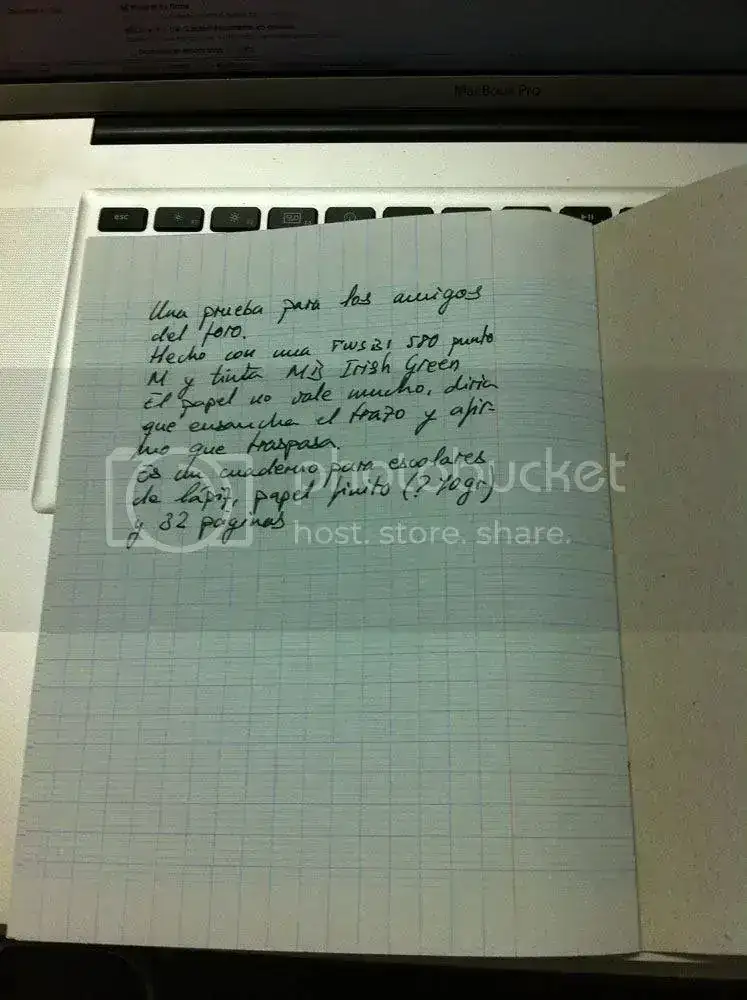 MacBook Pro
esc
Una prueba para los amigos
del foro.
Hecho con una TWSBI 580 punto
M y tinta MB Irish Green
El papel no vale mucho, diria
que ensancha el trazo y afir-
mo que traspasa.
Es un cuaderno para escolares
de lápiz, papel finito (? 70gr)
y 32 paginas
photobucket
host. store. share.